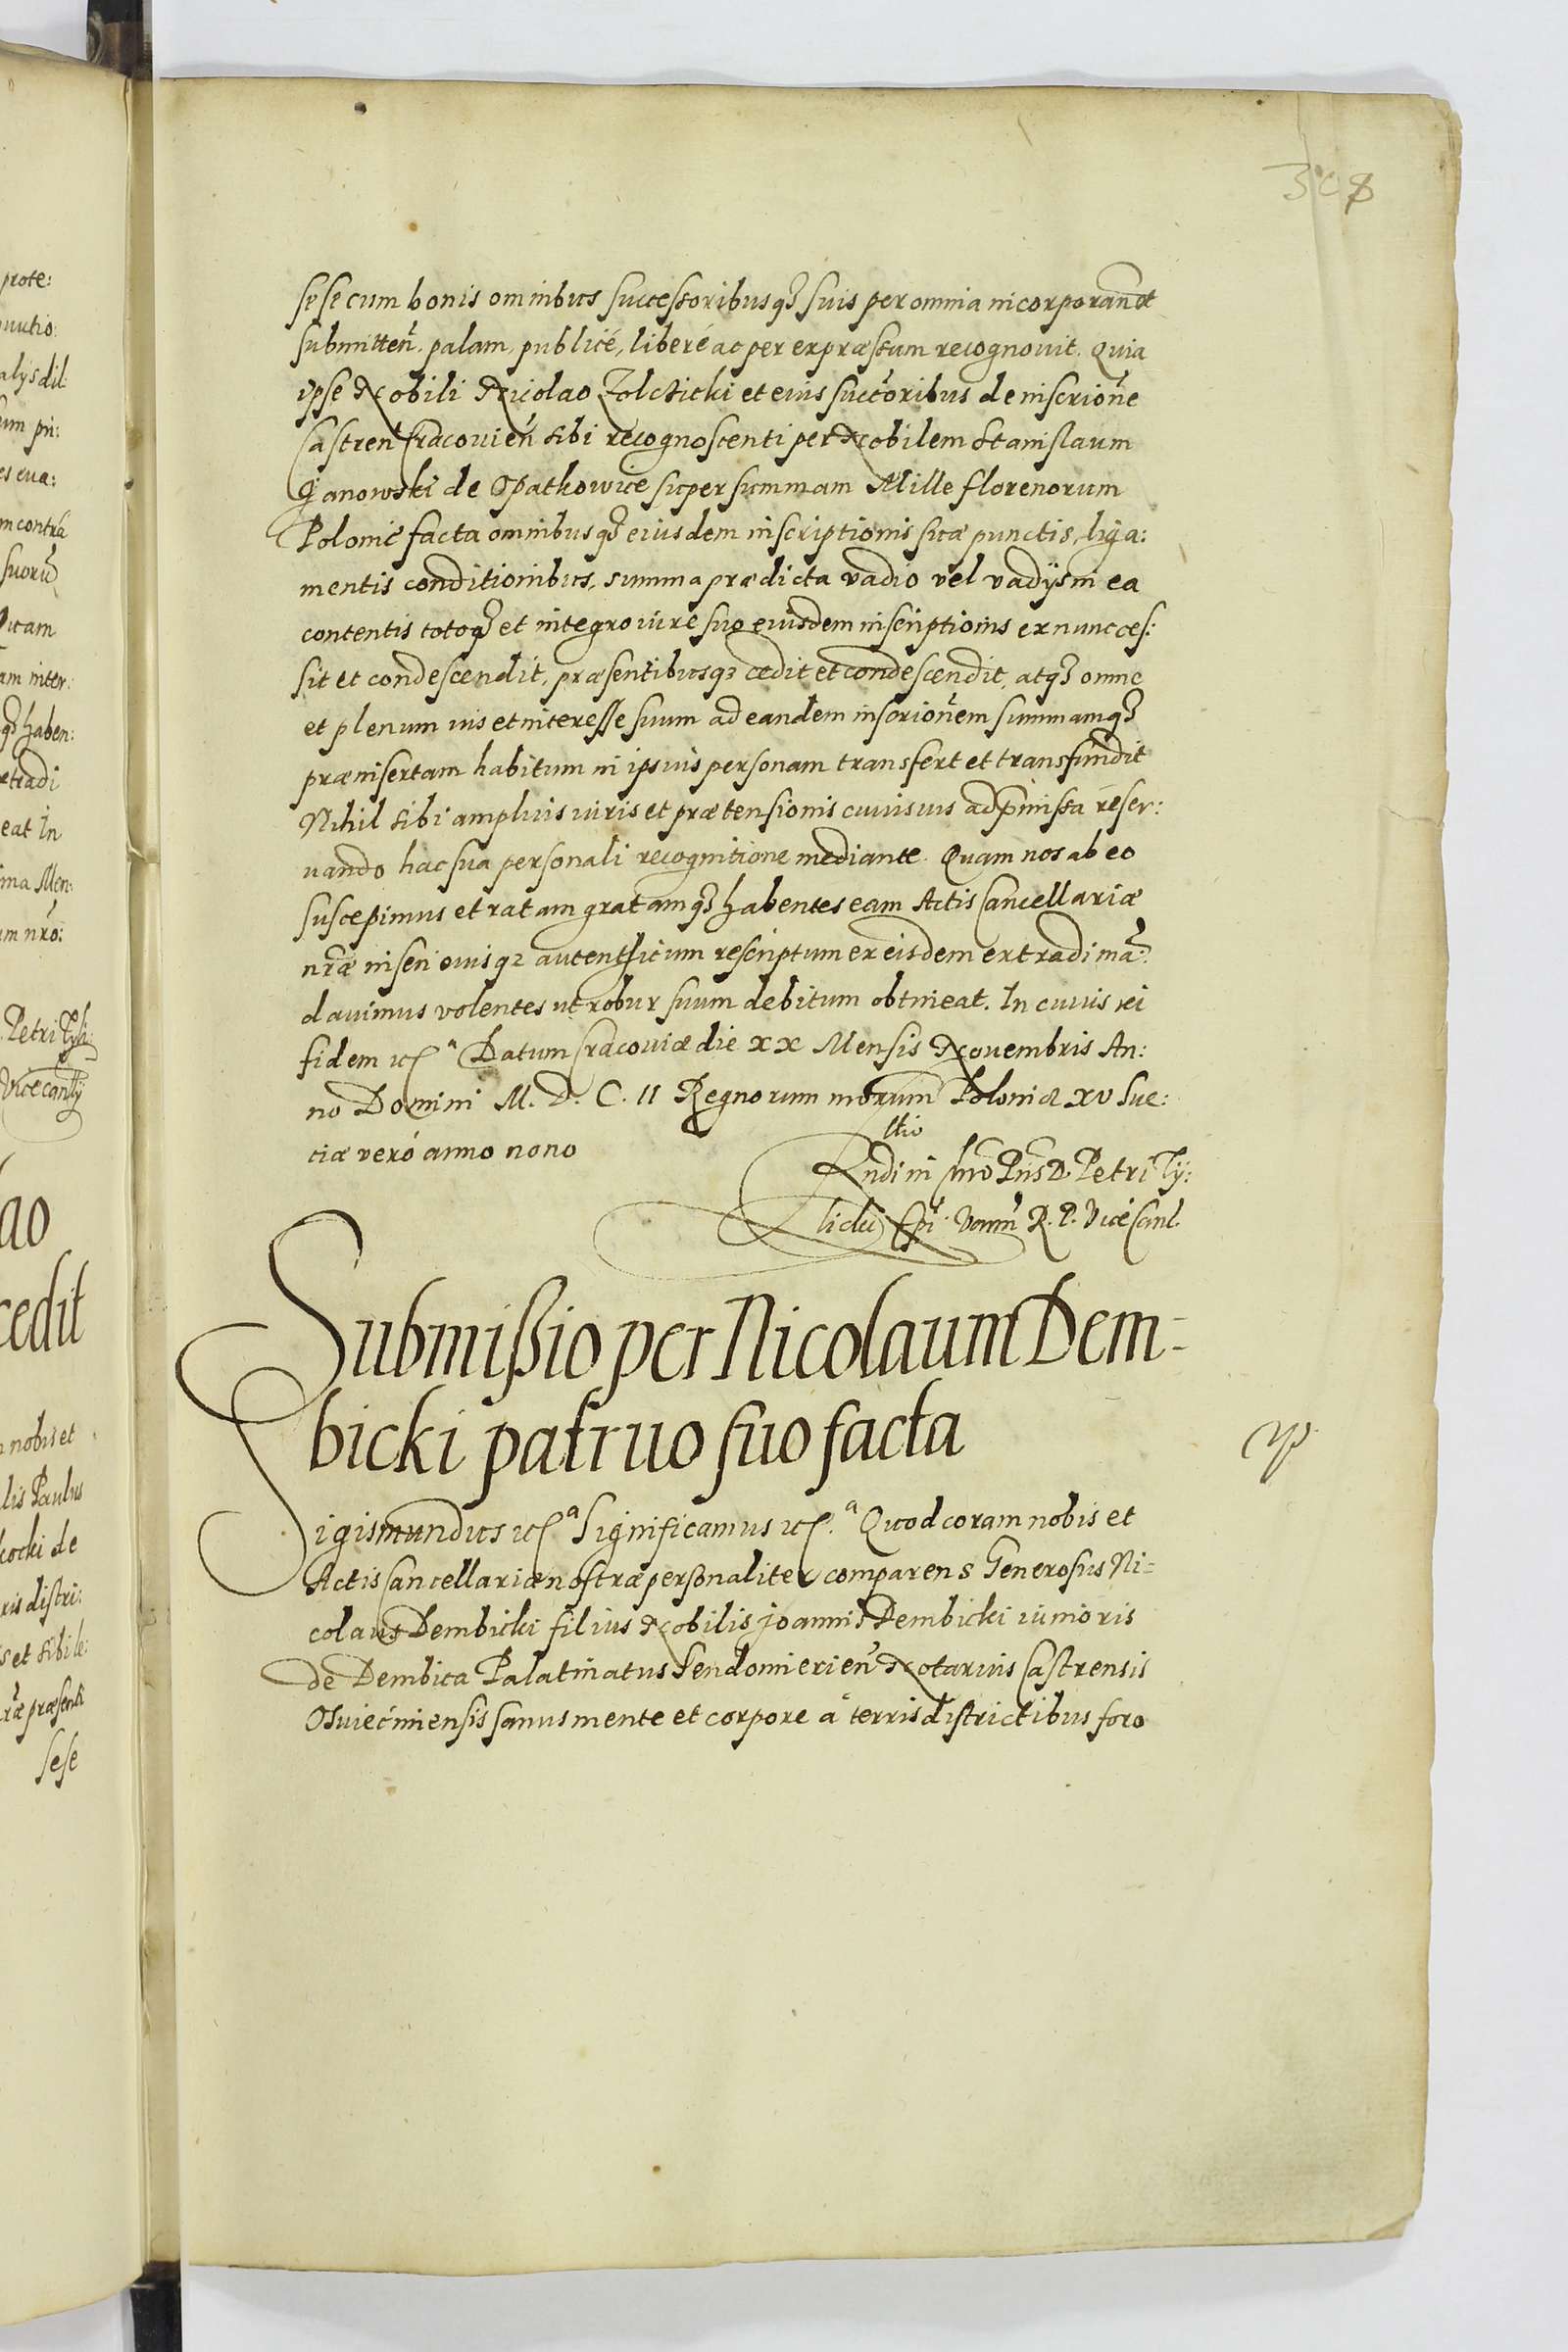 308
sese cum bonis omnibus successoribusq3 suis per omnia incorporan̄ et
submitten̄. palam, publicé, liberé ac per expræssum recognovit. Quia
ipse Nobili Nicolao Zolcticki et eius succōribus de inscriōne
Castren̄ Cracovien̄ sibi recognoscenti per Nobilem Stanislaum
Ganowski de Opatkowice super summam Mille florenorum
Polonic̄ facta omnibusq3 eiusdem inscriptionis suæ punctis, liga:
mentis conditionibus, summa prædicta vadio vel vadijs in ea
contentis totoq3 et integro iure suo eiusdem inscriptionis ex nunc ces:
sit et condescendit, præsentibusq3 cedit et condescendit, atq3 omne
et plenum ius et interesse suum ad eandem inscriōnem summamq3
præinsertam habitum in ipsius personam transfert et transfundit
Nihil sibi amplius iuris et prætensionis cuiusuis ad p̄missa reser:
uando hac sua personali recognitione mediante. Quam nos ab eo
suscepimus et ratam gratamq3 habentes eam Actis Cancellariæ
nr̄æ inseri ouisq3 autenthicum rescriptum ex eisdem extradi mā:
dauimus volentes ut robur suum debitum obtineat. In cuius rei
fidem etc̄a Datum Cracoviæ die XX Mensis Novembris An:
no Domini M. D. C. II Regnorum nr̄orum Poloniæ XV Sue:
ciæ veró anno nono
Rltio
Rndi in Chro Pris D. Petri Ty:
licki Epi Varm̄ R. P. Vice Canl.
Submissio per Nicolaum Dem-
bicki patruo suo facta
Sigismundus etc̄a Significamus etc̄.a Quod coram nobis et
Actis Cancellariæ nostræ personaliter comparens Generosus Ni=
colaus Dembicki filius Nobilis Joannis Dembicki iunioris
de Dembica Palatinatus Sendomierien̄ Notarius Castrensis
Osuiecimensis sanus mente et corpore á terris districtibus foro